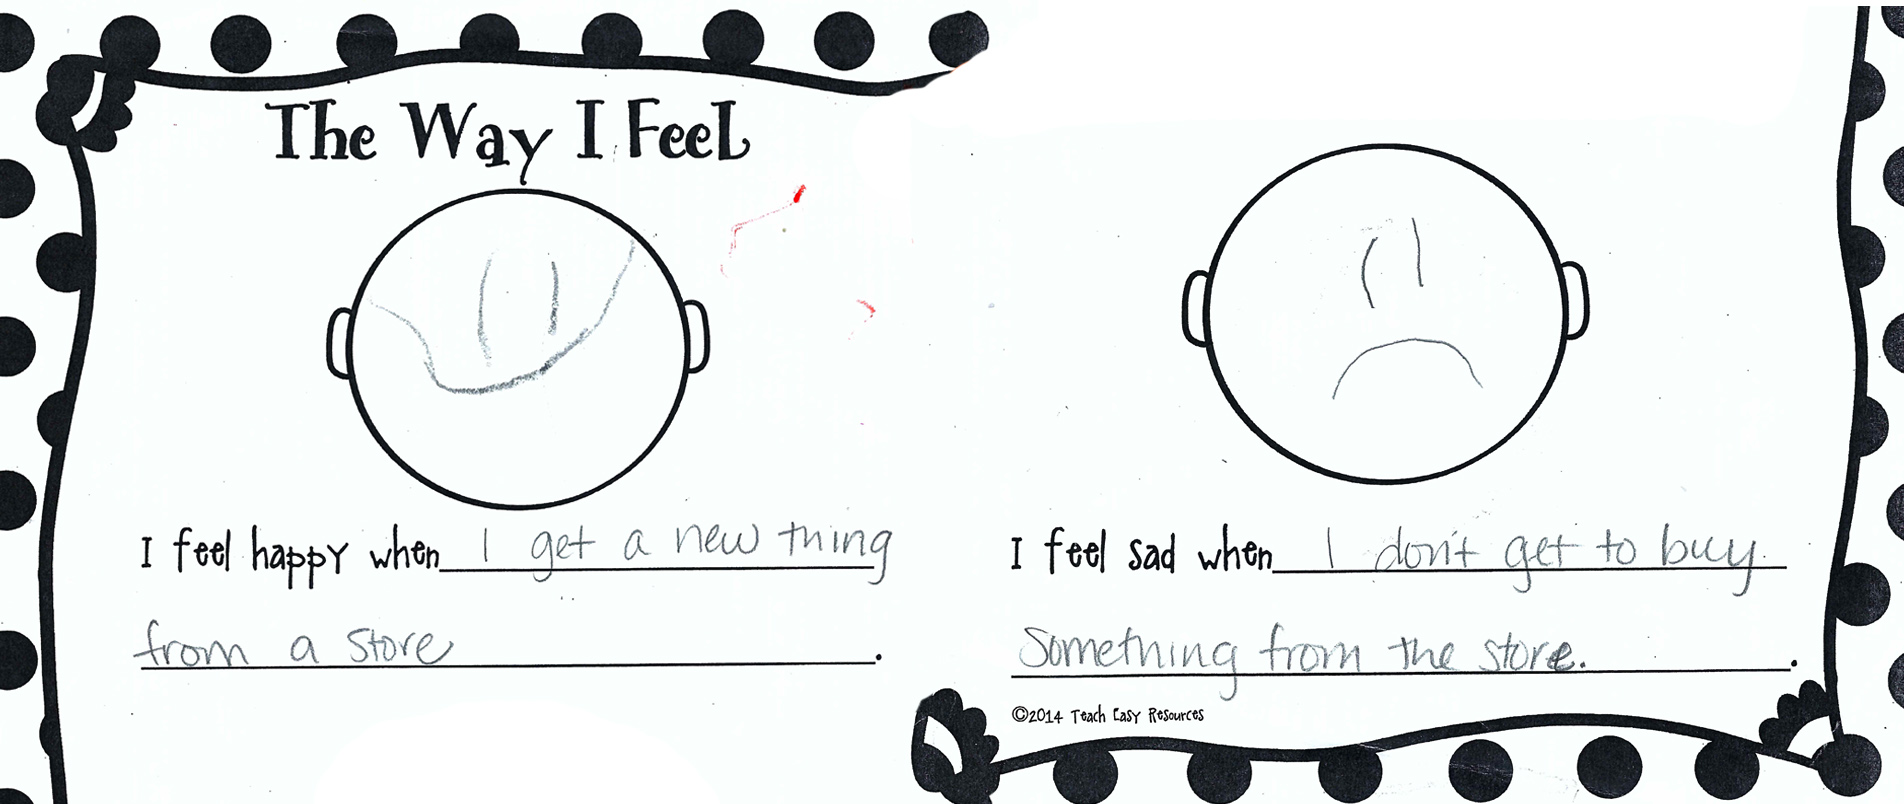 The Way I Feel
I feel happy when I get a new thing
from a store.
I feel sad when I don't get to buy
Something from the store..
©2014 Teach Easy Resources